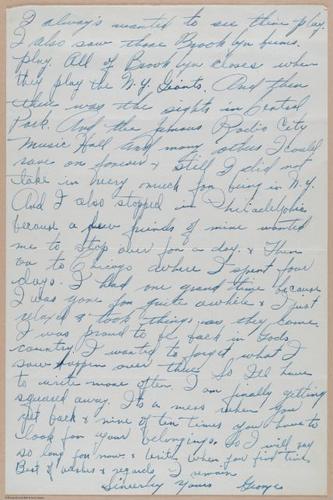 I always wanted to see them play.
I also saw those Brooklyn bums
play. All of Brooklyn closes when
they play the N.Y. Giants. And then
there was the sights in Central
Park. And the famous Radio City
Music Hall and many others I could
rave on for &  Still I did not
take in very much for being in N.Y.
And I also stopped in Philadelphia
because a few friends of mine wanted
me to stop over for a day. & Then
on to Chicago where I spent four
days. I had one grand time because
I was gone for quite awhile & I just
relaxed & took things as they came.
I was proud to be back in Gods
country. I wanted to forget what I
saw happen over there. So I'll have
to write more often. I am finally getting
squared away. Its a mess when you
get back & nine of ten times you have to
look for your belongings. So I will say
so long for now & write when you find time.
Best of wishes & regards I remain
Sincerely Yours George